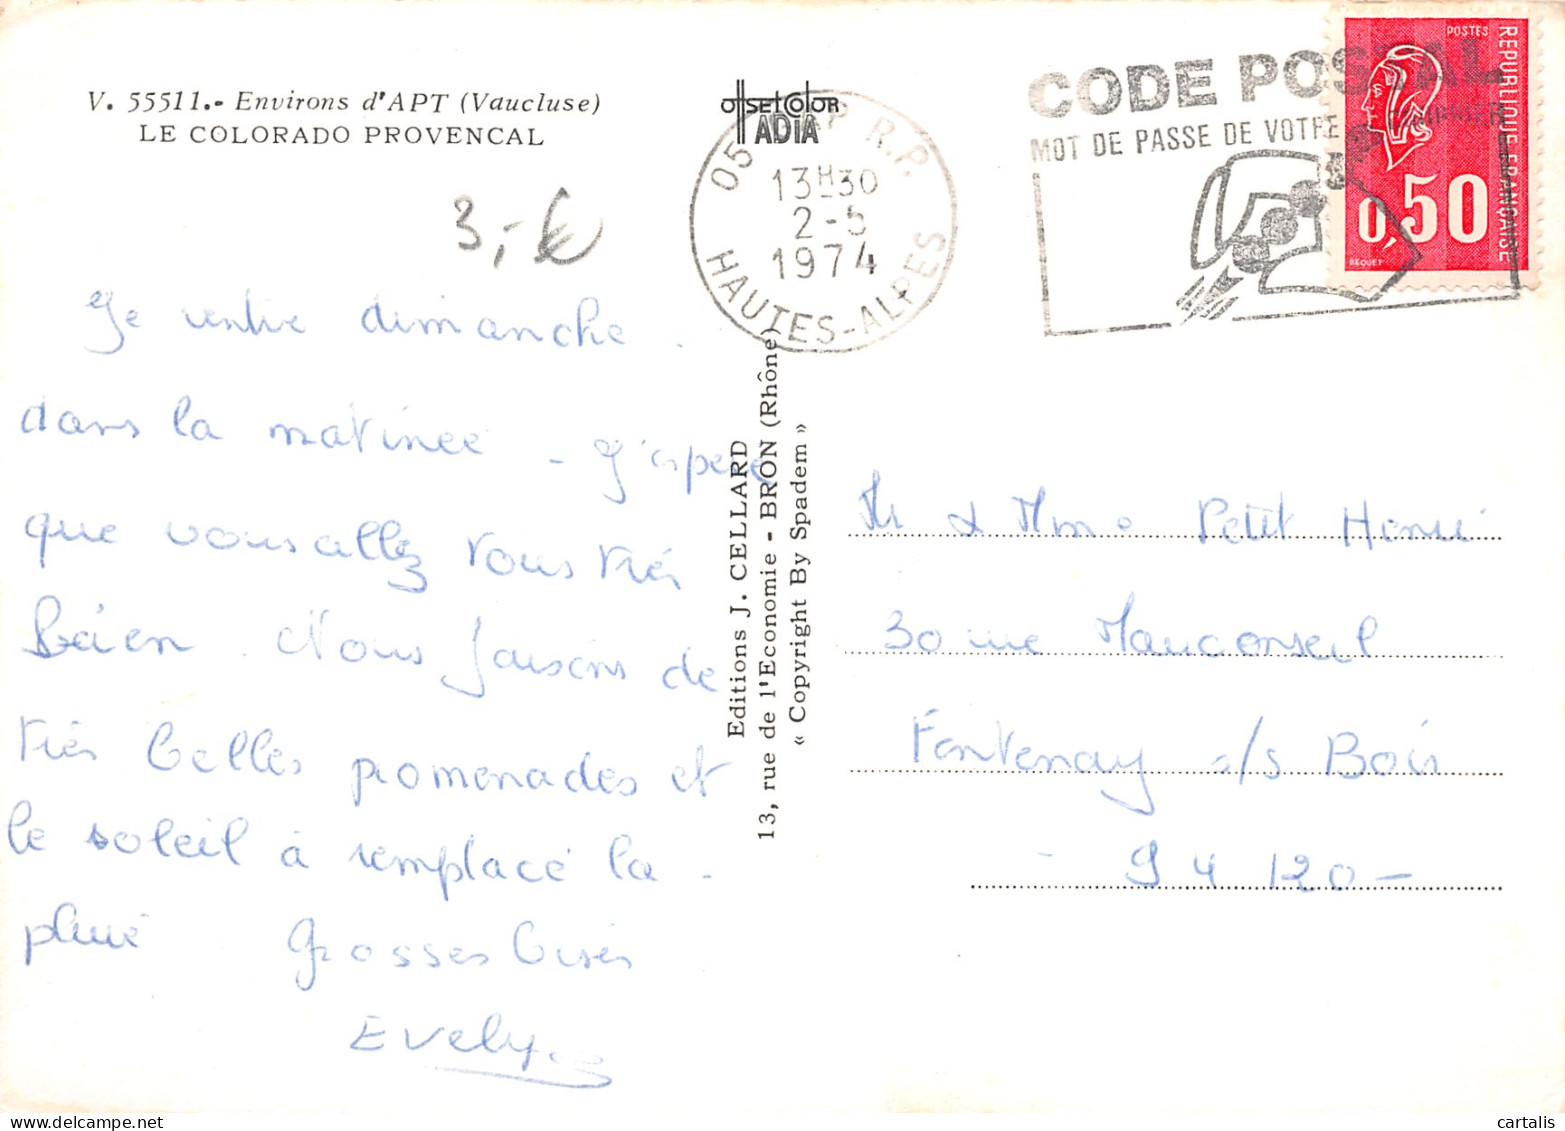 V. 55511.- Environs d'APT (Vaucluse)
LE COLORADO PROVENCAL
3,-€
Je rentre dimanche.
dans la matinée - J'espère
que vous allez tous très
bien. Nous faisons de
très belles promenades et
le soleil à remplacé la
pluie Grosses bises
Evelyne
offsetcolor
ADIA
05 GAP R.P.
13H30
2-5
1974
HAUTES-ALPES
CODE POSTAL
MOT DE PASSE DE VOTRE COURRIER
POSTES
REPUBLIQUE FRANÇAISE
0,50
BEQUET
Editions J. CELLARD
13, rue de l'Economie - BRON (Rhône)
« Copyright By Spadem »
Mr & Mme Petit Henri
30 rue Mauconseil
Fontenay s/s Bois
- 94 120 -
cartalis